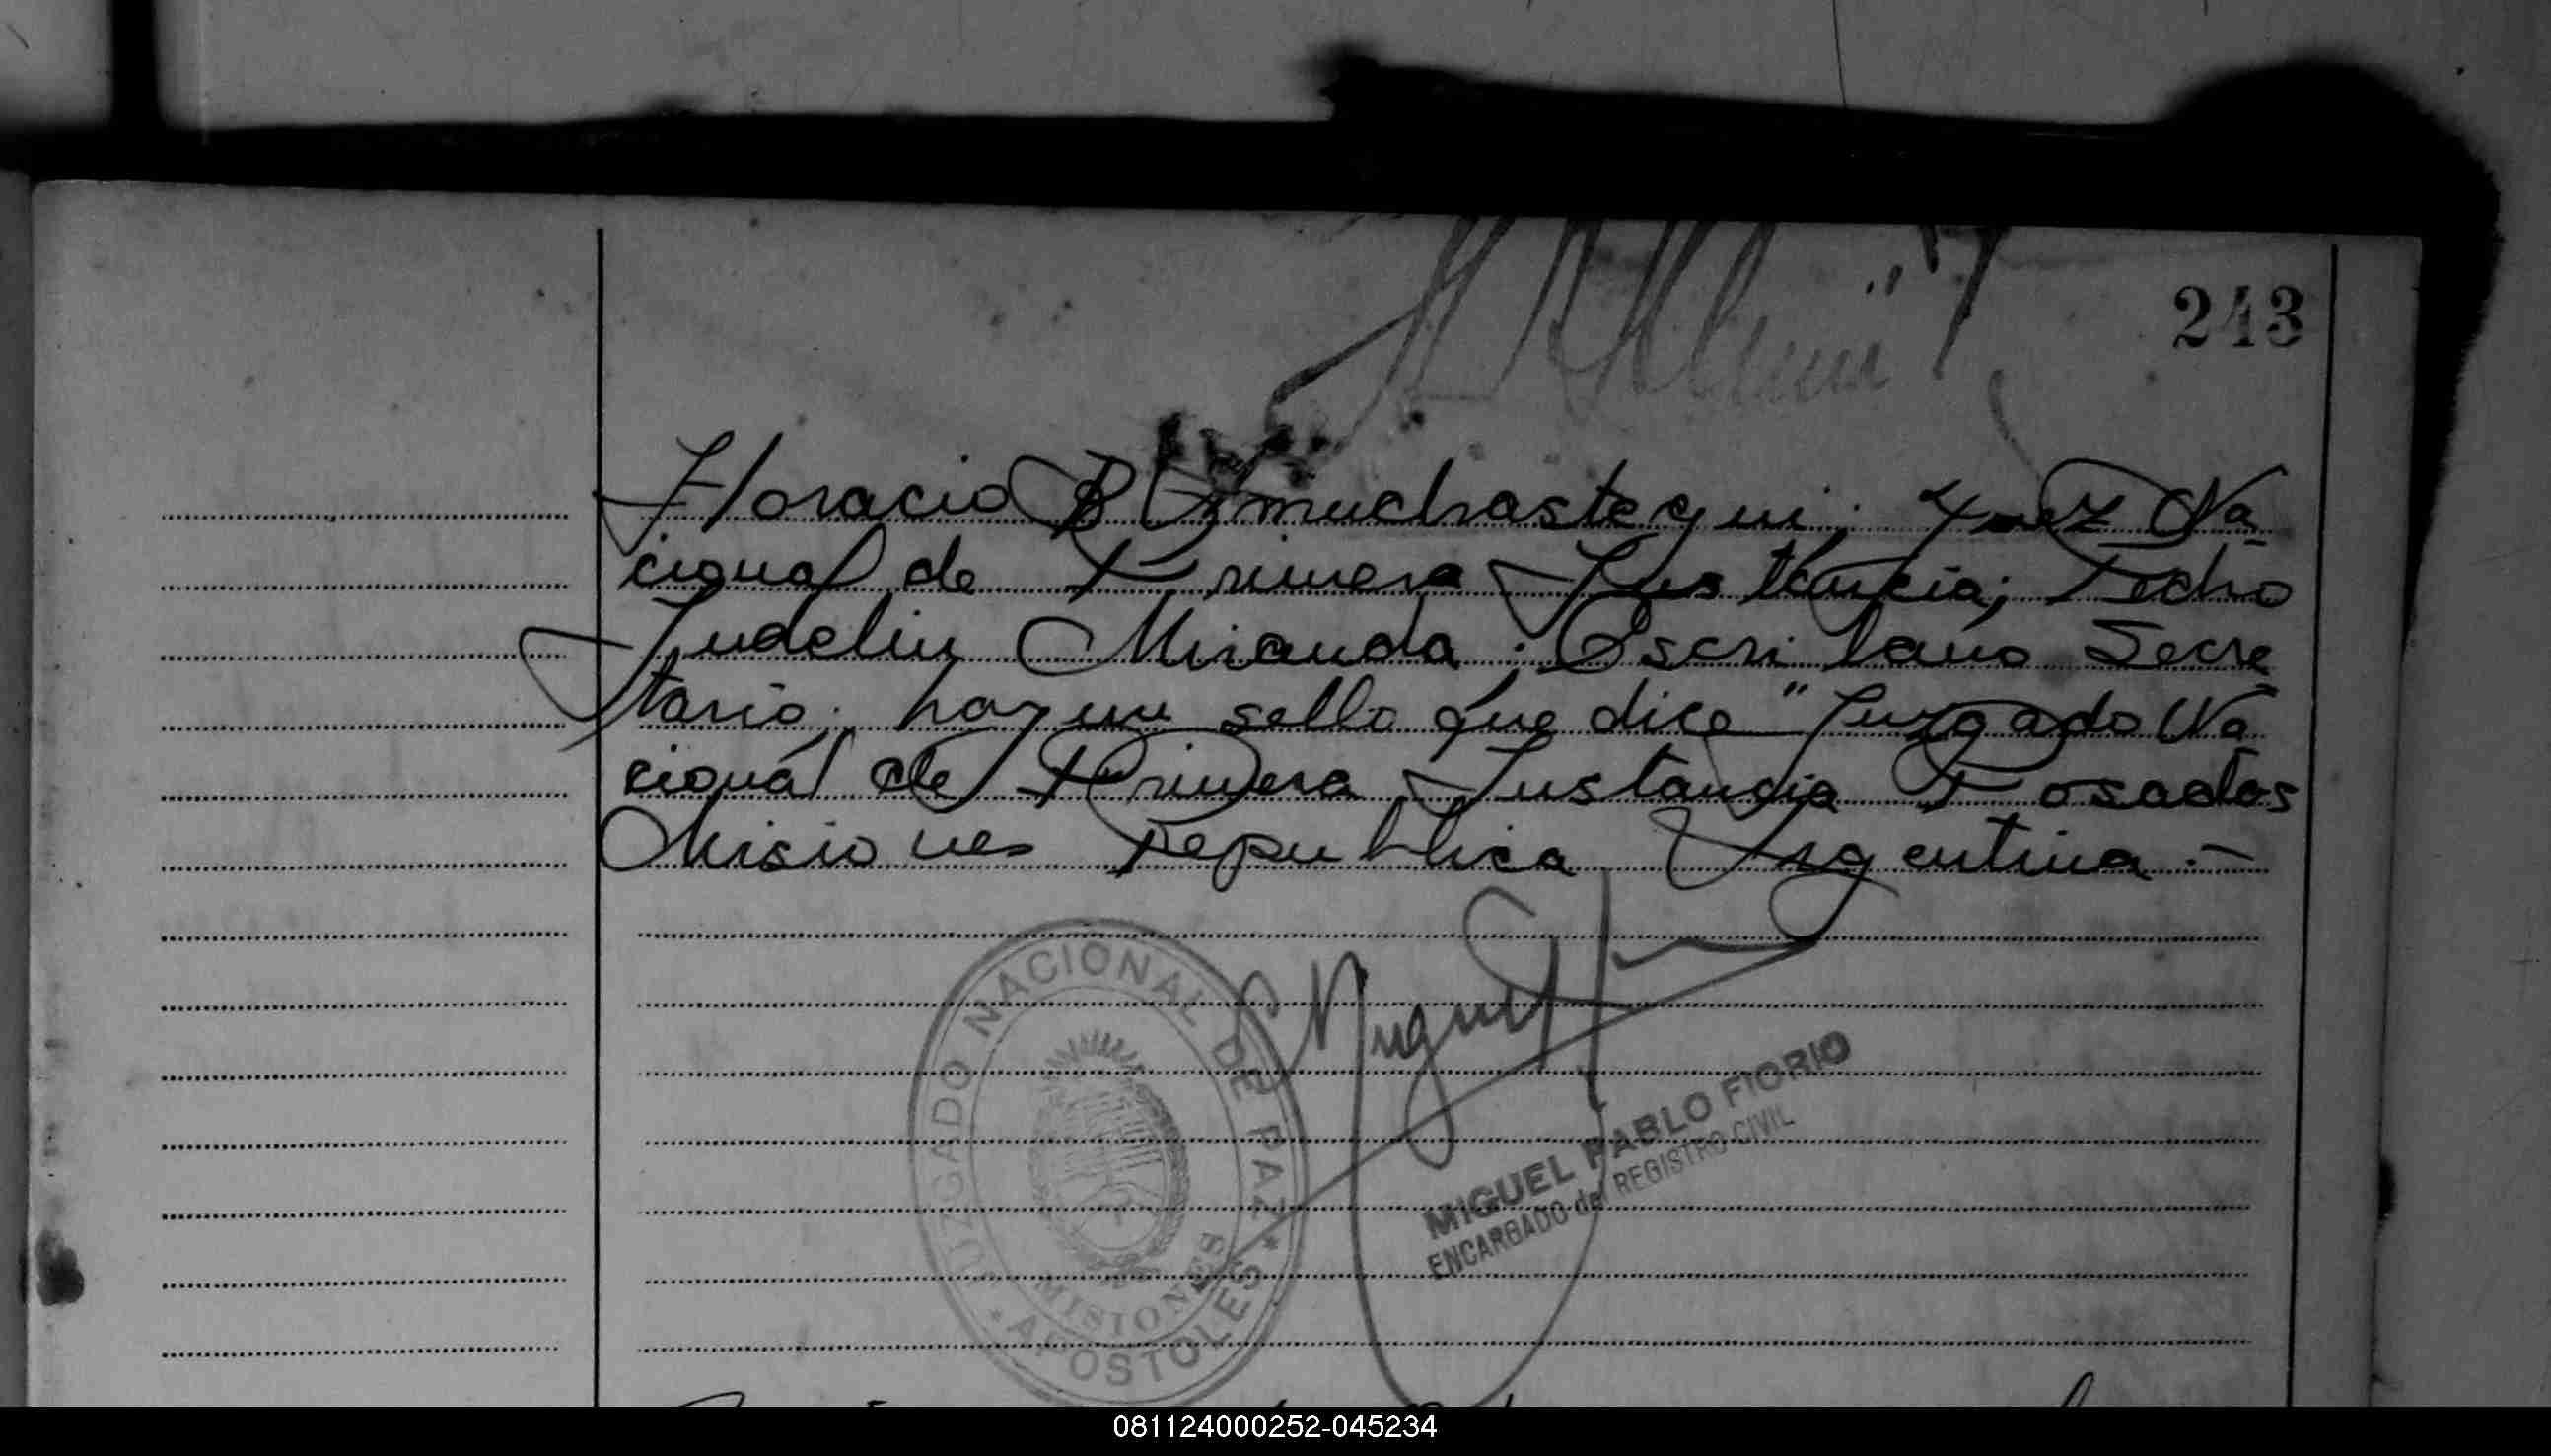 243
Horacio B Amuchastegui; Juez Na
cional de Primera Instancia; Pedro
Indelin Miranda; Escribano Secre
tario; hay un sello que dice "Juzgado Na
cional de Primera Instancia Posadas
Misiones Republica Argentina.-
JUZGADO NACIONAL DE PAZ
MISIONES
APOSTOLES
MIGUEL PABLO FIORIO
ENCARGADO del REGISTRO CIVIL
081124000252-045234